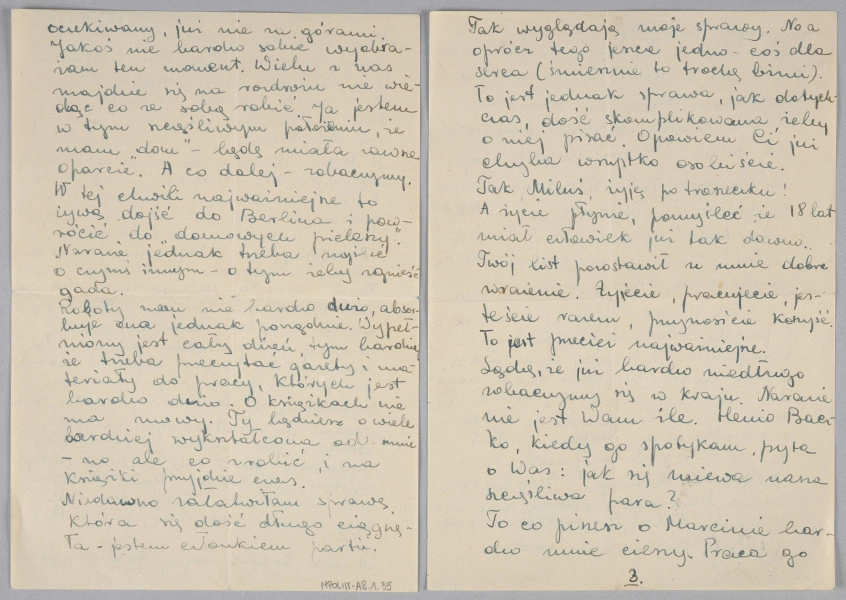 oczekiwany, już nie za górami.
Jakoś nie bardzo sobie wyobra-
żam ten moment. Wielu z nas
znajdzie się na rozdrożu nie wie-
dząc co ze sobą robić. Ja jestem
w tym szczęśliwym położeniu, że
mam "dom" - będę miała zawsze
oparcie. A co dalej - zobaczymy.
W tej chwili najważniejsze to
żywą dojść do Berlina i pow-
rócić do "domowych pieleszy".
Narazie jednak trzeba myśleć
o czymś innym - o tym żeby zgnieść
gada.
Roboty mam nie bardzo dużo, absor-
buje ona jednak porządnie. Wypeł-
niony jest cały dzień, tym bardziej
że trzeba przeczytać gazety i ma-
teriały do pracy, których jest
bardzo dużo. O książkach nie
ma mowy. Ty będziesz o wiele
bardziej wykształcona od mnie
- no ale co zrobić, i na
książki przyjdzie czas.
Niedawno załatwiłam sprawę
która się dość długo ciągnę-
ła - jestem członkiem partii.
MPOLIN-A8.1.35
Tak wyglądają moje sprawy. No a
oprócz tego jeszcze jedno - coś dla
serca (śmiesznie to trochę brzmi).
To jest jednak sprawa, jak dotych-
czas, dość skomplikowana żeby
o niej pisać. Opowiem Ci już
chyba wszystko osobiście.
Tak Miluś, żyję po troszeczku!
A życie płynie, pomyśleć że 18 lat
miał człowiek już tak dawno.
Twój list pozostawił u mnie dobre
wrażenie. Żyjecie, pracujecie, jes-
teście razem, przynosicie korzyść.
To jest przecież najważniejsze.
Sądzę, że już bardzo niedługo
zobaczymy się w kraju. Narazie
nie jest Wam źle. Henio Bacz-
ko, kiedy go spotykam, pyta
o Was: jak się miewa nasza
szczęśliwa para?
To co piszesz o Marcinie bar-
dzo mnie cieszy. Praca go
3.